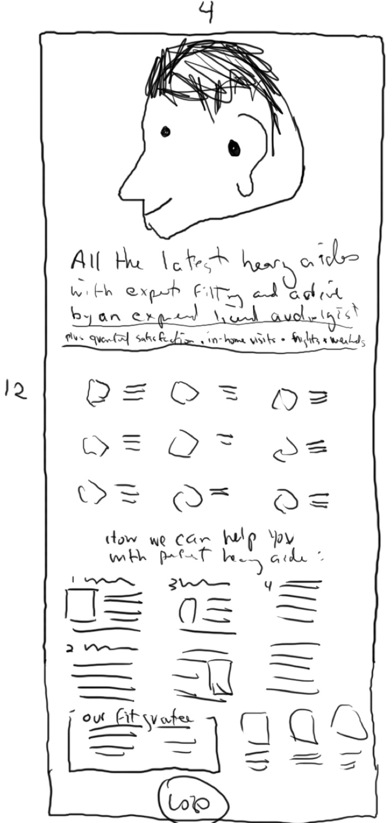 4
All the latest hearing aides
with expert fitting and advice
by an expend licend audiologist
plus guaranteed satisfaction • in-home visits • nights & weekends
12
How we can help you
with perfect hearing aide:
1
3
4
2
our fit guarantee
LOGO